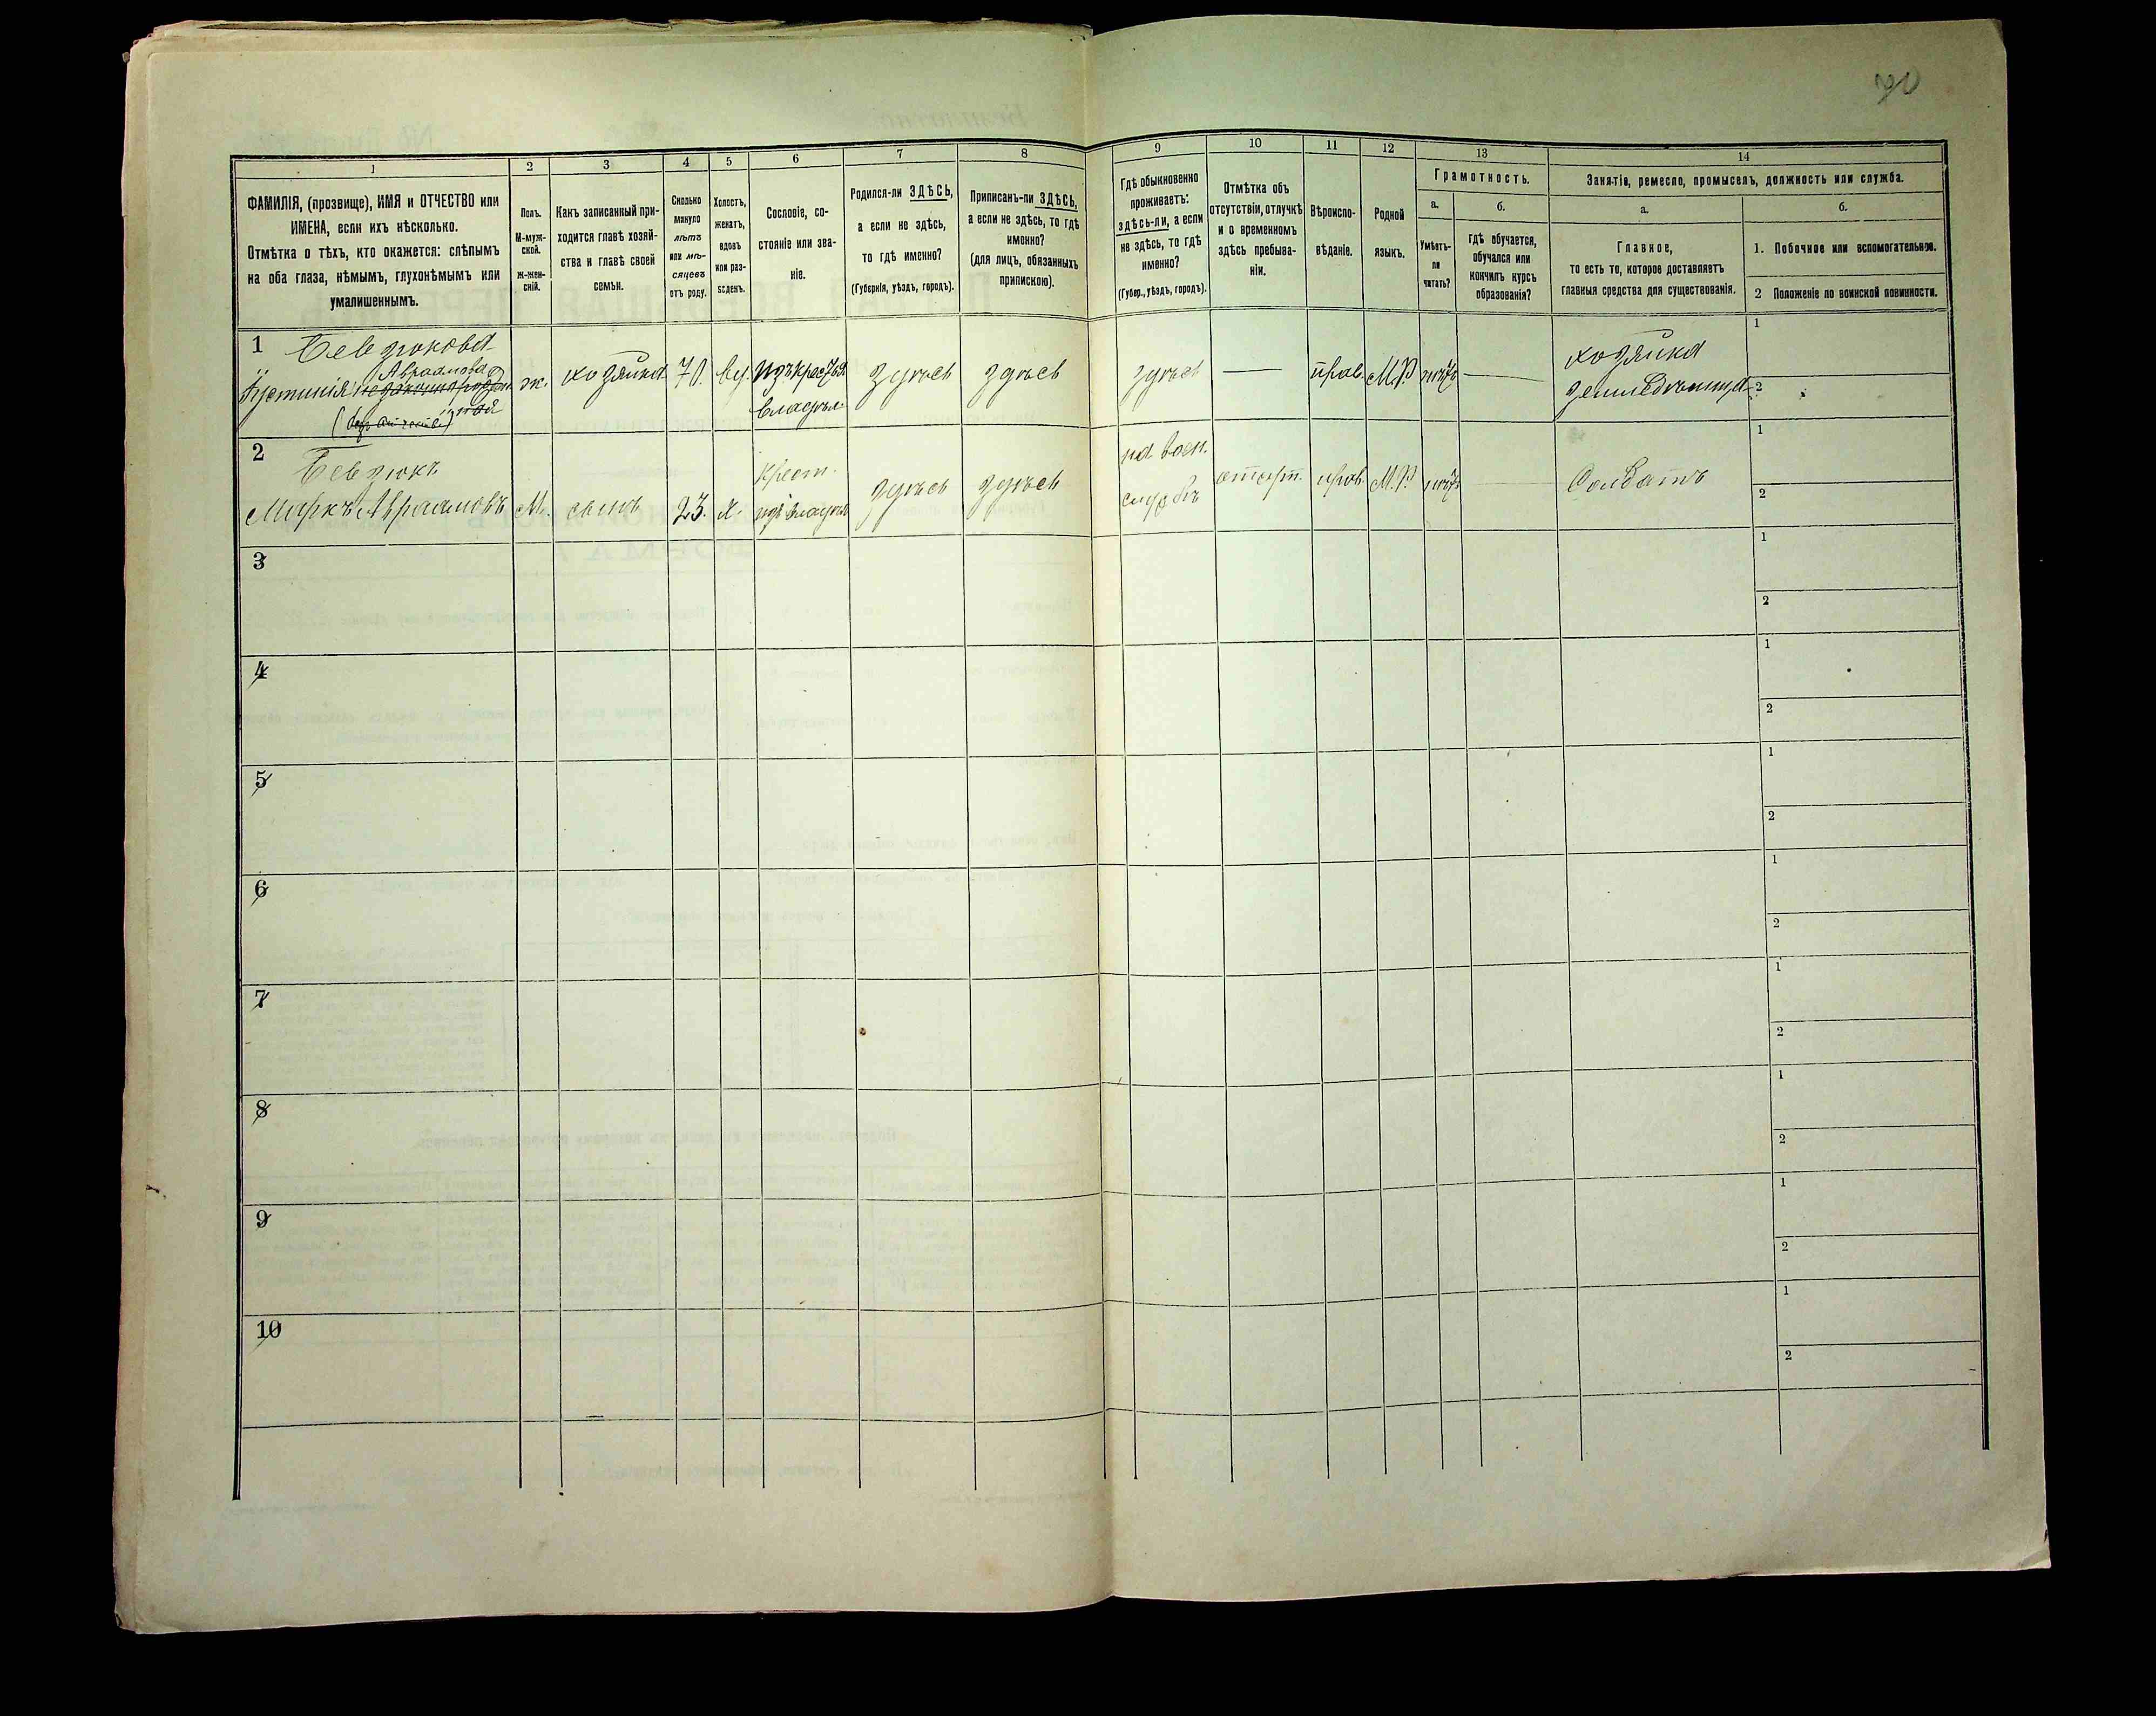 90
1
2
3
4
5
6
7
8
ФАМИЛІЯ, (прозвище), ИМЯ и ОТЧЕСТВО или
ИМЕНА, если ихъ нѣсколько.
Отмѣтка о тѣхъ, кто окажется: слѣпымъ
на оба глаза, нѣмымъ, глухонѣмымъ или
умалишеннымъ.
Полъ.
М-муж-
ской.
Ж-жен-
скій.
Какъ записанный при-
ходится главѣ хозяй-
ства и главѣ своей
семьи.
Сколько
минуло
лѣтъ
или мѣ-
сяцевъ
отъ роду.
Холостъ,
женатъ,
вдовъ
или раз-
веденъ.
Сословіе, со-
стояніе или зва-
ніе.
Родился-ли ЗДѢСЬ,
а если не здѣсь,
то гдѣ именно?
(Губернія, уѣздъ, городъ).
Приписанъ-ли ЗДѢСЬ,
а если не здѣсь, то гдѣ
именно?
(для лицъ, обязанныхъ
припискою).
9
10
11
12
13
14
Гдѣ обыкновенно
проживаетъ:
здѣсь-ли, а если
не здѣсь, то гдѣ
именно?
(Губер., уѣздъ, городъ).
Отмѣтка объ
отсутствіи, отлучкѣ
и о временномъ
здѣсь пребыва-
ніи.
Вѣроиспо-
вѣданіе.
Родной
языкъ.
Грамотность.
а.
Умѣетъ-
ли
читать?
б.
Гдѣ обучается,
обучался или
кончилъ курсъ
образованія?
Занятіе, ремесло, промыселъ, должность или служба.
а.
Главное,
то есть то, которое доставляетъ
главныя средства для существованія.
б.
1. Побочное или вспомогательное.
2 Положеніе по воинской повинности.
1
Бевзюкова
Авраамова
Ѳустинія незаконнорожден
ная
(безъ отчества)
ж.
хозяйка
70.
вд.
изъ крест.
владѣл.
здѣсь
здѣсь
здѣсь
—
прав.
М.Р.
нѣтъ
—
хозяйка
земледѣлица
1
2
2
Бевзюкъ
Маркъ Авраамовъ
М.
сынъ
23.
х.
крест.
изъ владѣл
здѣсь
здѣсь
на воен.
службѣ
отсут.
прав.
М.Р.
нѣтъ
Солдатъ
1
2
3
1
2
4
1
2
5
1
2
6
1
2
7
1
2
8
1
2
9
1
2
10
1
2